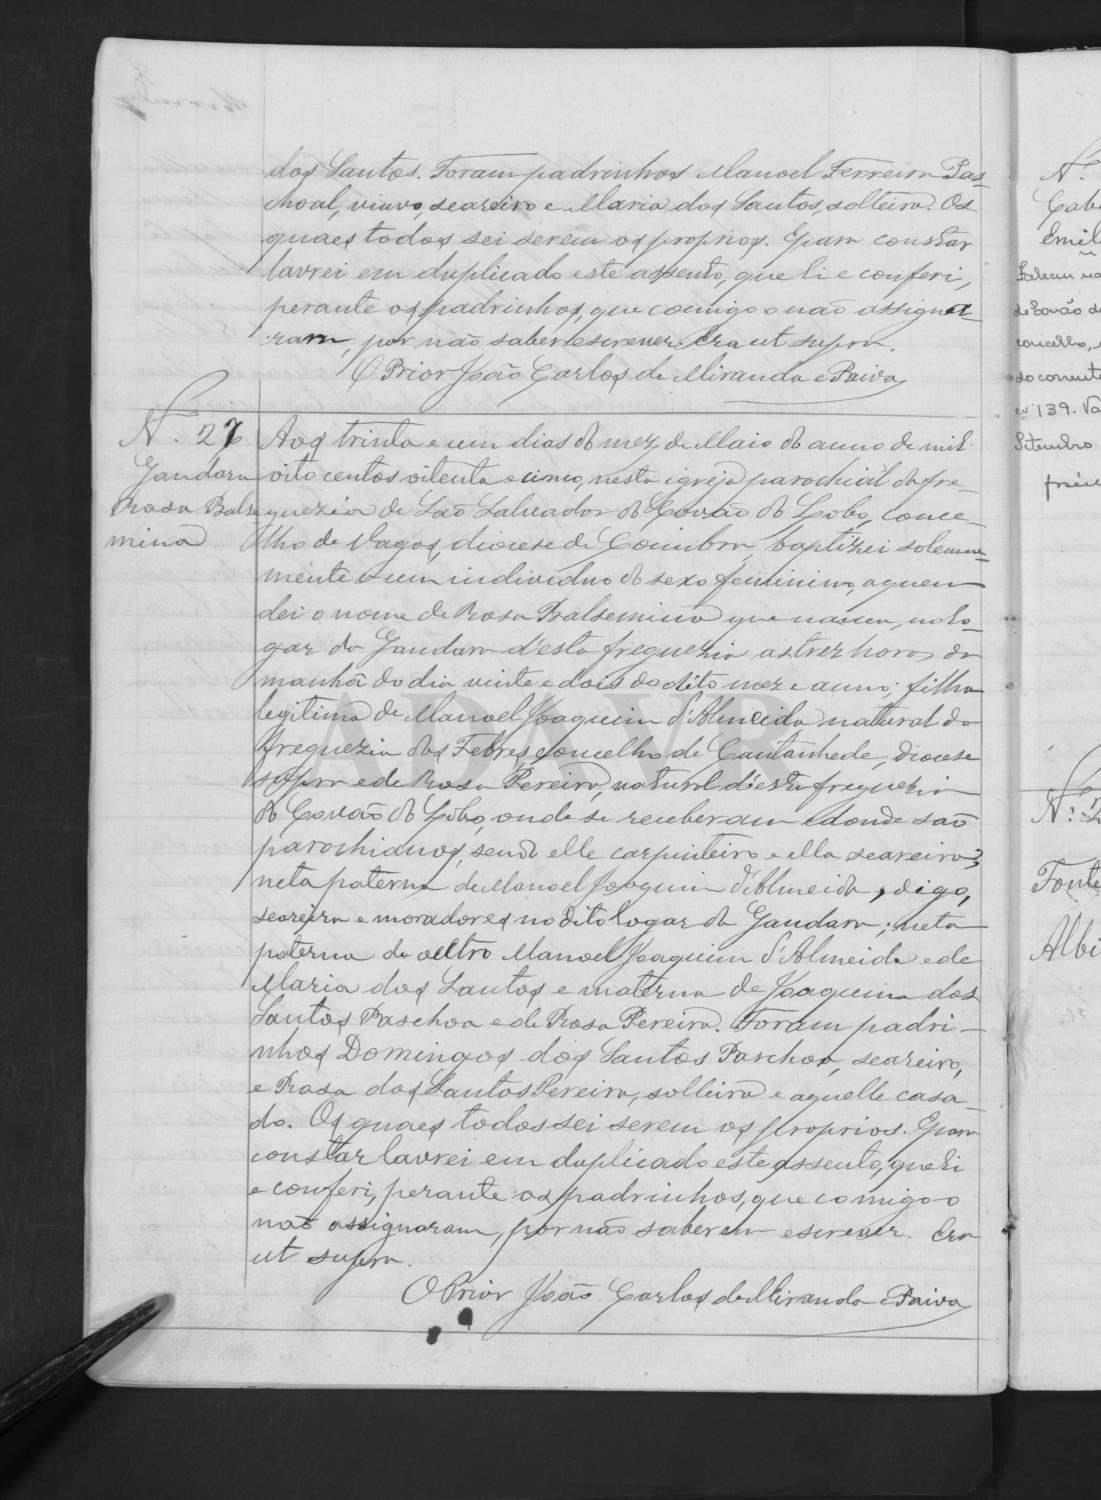 dos Santos. Foram padrinhos Manoel Ferreira Pas-
choal, viuvo, seareiro e Maria dos Santos, solteira. Os
quaes todos sei serem os proprios. E para constar
lavrei em duplicado este assento, que li e conferi,
perante os padrinhos, que comigo o não assigna-
ram, por não saber escrever. Era ut supra.
O Prior João Carlos de Miranda e Paiva
N. 27
Gandara
Rosa Balse
mina
Aos trinta e um dias do mez de Maio do anno de mil
oito centos oitenta e cinco, nesta igreja parochial da fre-
guezia de São Salvador do Covão do Lobo, conce-
lho de Vagos, diocese de Coimbra, baptizei solemne-
mente a um individuo do sexo feminino, a quem
dei o nome de Rosa Balsemina que nasceu, no lo-
gar da Gandara d'esta freguezia as trez horas da
manhã do dia vinte e dois do dito mez e anno; filha
legitima de Manoel Joaquim d'Almeida natural da
freguezia das Febres, concelho de Cantanhede, diocese
supra e de Rosa Pereira, natural d'esta freguezia
do Covão do Lobo, onde se receberam e donde são
parochianos, sendo elle carpinteiro e ella seareira,
neta paterna de Manoel Joaquim d'Almeida, digo,
seareira e moradores no dito logar da Gandara; neta
paterna de outro Manoel Joaquim d'Almeida e de
Maria dos Santos e materna de Joaquim dos
Santos Paschoa e de Rosa Pereira. Foram padri-
nhos Domingos dos Santos Paschoa, seareiro,
e Rosa dos Santos Pereira, solteira e aquelle casa-
do. Os quaes todos sei serem os proprios. E para
constar lavrei em duplicado este assento, que li
e conferi, perante os padrinhos, que comigo o
não assignaram, por não saberem escrever. Era
ut supra.
O Prior João Carlos de Miranda e Paiva
N.
Gab
Emil
concelho,
do corrente
139. Va
Setembro
N.
Fonte
Albi
ADAVR